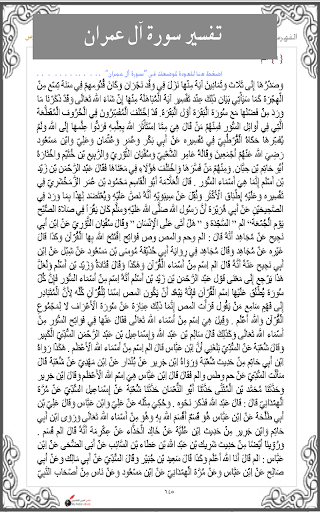 الفهرس
تفسير سورة آل عمران
اضغط هنا للعودة لموضعك في "سورة آل عمران"
وَصَدْرُهَا إِلَى ثَلَاث وَثَمَانِينَ آيَة مِنْهَا نَزَلَ فِي وَفْد نَجْرَان وَكَانَ قُدُومهمْ فِي سَنَة تِسْع مِنْ
الْهِجْرَة كَمَا سَيَأْتِي بَيَان ذَلِكَ عِنْد تَفْسِير آيَة الْمُبَاهَلَة مِنْهَا إِنْ شَاءَ اللَّه تَعَالَى وَقَدْ ذَكَرْنَا مَا
وَرَدَ مِنْ فَضْلهَا مَعَ سُورَة الْبَقَرَة أَوَّل الْبَقَرَة. قَدْ اِخْتَلَفَ الْمُفَسِّرُونَ فِي الْحُرُوف الْمُقَطَّعَة
الَّتِي فِي أَوَائِل السُّوَر فَمِنْهُمْ مَنْ قَالَ هِيَ مِمَّا اِسْتَأْثَرَ اللَّه بِعِلْمِهِ فَرَدُّوا عِلْمهَا إِلَى اللَّه وَلَمْ
يُفَسِّرهَا حَكَاهُ الْقُرْطُبِيّ فِي تَفْسِيره عَنْ أَبِي بَكْر وَعُمَر وَعُثْمَان وَعَلِيّ وَابْن مَسْعُود
رَضِيَ اللَّه عَنْهُمْ أَجْمَعِينَ وَقَالَهُ عَامِر الشَّعْبِيّ وَسُفْيَان الثَّوْرِيّ وَالرَّبِيع بْن خَيْثَم وَاخْتَارَهُ
أَبُو حَاتِم بْن حِبَّان. وَمِنْهُمْ مَنْ فَسَّرَهَا وَاخْتَلَفَ هَؤُلَاءِ فِي مَعْنَاهَا فَقَالَ عَبْد الرَّحْمَن بْن زَيْد
بْن أَسْلَم إِنَّمَا هِيَ أَسْمَاء السُّوَر . قَالَ الْعَلَّامَة أَبُو الْقَاسِم مَحْمُود بْن عُمَر الزَّمَخْشَرِيّ فِي
تَفْسِيره وَعَلَيْهِ إِطْبَاق الْأَكْثَر وَنُقِلَ عَنْ سِيبَوَيْهِ أَنَّهُ نَصَّ عَلَيْهِ وَيُعْتَضَد لِهَذَا بِمَا وَرَدَ فِي
الصَّحِيحَيْنِ عَنْ أَبِي هُرَيْرَة أَنَّ رَسُول اللَّه صَلَّى اللَّه عَلَيْهِ وَسَلَّمَ كَانَ يَقْرَأ فِي صَلَاة الصُّبْح
يَوْم الْجُمُعَة" الم " السَّجْدَة وَ " هَلْ أَتَى عَلَى الْإِنْسَان " وَقَالَ سُفْيَان الثَّوْرِيّ عَنْ اِبْن أَبِي
نَجِيح عَنْ مُجَاهِد أَنَّهُ قَالَ : الم وحم والمص وص فَوَاتِح اِفْتَتَحَ اللَّه بِهَا الْقُرْآن وَكَذَا قَالَ
غَيْره عَنْ مُجَاهِد وَقَالَ مُجَاهِد فِي رِوَايَة أَبِي حُذَيْفَة مُوسَى بْن مَسْعُود عَنْ شِبْل عَنْ اِبْن
أَبِي نَجِيح عَنْهُ أَنَّهُ قَالَ الم اِسْم مِنْ أَسْمَاء الْقُرْآن وَهَكَذَا وَقَالَ قَتَادَة وَزَيْد بْن أَسْلَم وَلَعَلَّ
هَذَا يَرْجِع إِلَى مَعْنَى قَوْل عَبْد الرَّحْمَن بْن زَيْد بْن أَسْلَم أَنَّهُ اِسْم مِنْ أَسْمَاء السُّوَر فَإِنَّ كُلّ
سُورَة يُطْلَق عَلَيْهَا اِسْم الْقُرْآن فَإِنَّهُ يَبْعُد أَنْ يَكُون المص اِسْمًا لِلْقُرْآنِ كُلّه لِأَنَّ الْمُتَبَادِر
إِلَى فَهْم سَامِع مَنْ يَقُول قَرَأْت المص إِنَّمَا ذَلِكَ عِبَارَة عَنْ سُورَة الْأَعْرَاف لَا لِمَجْمُوعِ
الْقُرْآن وَاَللَّه أَعْلَم . وَقِيلَ هِيَ اِسْم مِنْ أَسْمَاء اللَّه تَعَالَى فَقَالَ عَنْهَا فِي فَوَاتِح السُّوَر مِنْ
أَسْمَاء اللَّه تَعَالَى وَكَذَلِكَ قَالَ سَالِم بْن عَبْد اللَّه وَإِسْمَاعِيل بْن عَبْد الرَّحْمَن السُّدِّيّ الْكَبِير
وَقَالَ شُعْبَة عَنْ السُّدِّيّ بَلَغَنِي أَنَّ اِبْن عَبَّاس قَالَ الم اِسْم مِنْ أَسْمَاء اللَّه الْأَعْظَم . هَكَذَا رَوَاهُ
اِبْن أَبِي حَاتِم مِنْ حَدِيث شُعْبَة وَرَوَاهُ اِبْن جَرِير عَنْ بُنْدَار عَنْ اِبْن مَهْدِيّ عَنْ شُعْبَة قَالَ
سَأَلْت السُّدِّيّ عَنْ حم وطس والم فَقَالَ قَالَ اِبْن عَبَّاس هِيَ اِسْم اللَّه الْأَعْظَم وَقَالَ اِبْن جَرِير
وَحَدَّثَنَا مُحَمَّد بْن الْمُثَنَّى حَدَّثَنَا أَبُو النُّعْمَان حَدَّثَنَا شُعْبَة عَنْ إِسْمَاعِيل السُّدِّيّ عَنْ مُرَّة
الْهَمْدَانِيّ قَالَ : قَالَ عَبْد اللَّه فَذَكَرَ نَحْوه. وَحُكِيَ مِثْله عَنْ عَلِيّ وَابْن عَبَّاس وَقَالَ عَلِيّ بْن
أَبِي طَلْحَة عَنْ اِبْن عَبَّاس هُوَ قَسَم أَقْسَمَ اللَّه بِهِ وَهُوَ مِنْ أَسْمَاء اللَّه تَعَالَى وَرَوَى اِبْن أَبِي
حَاتِم وَابْن جَرِير مِنْ حَدِيث اِبْن عُلَيَّة عَنْ خَالِد الْحَذَّاء عَنْ عِكْرِمَة أَنَّهُ قَالَ الم قَسَم .
وَرَوَيْنَا أَيْضًا مِنْ حَدِيث شَرِيك بْن عَبْد اللَّه بْن عَطَاء بْن السَّائِب عَنْ أَبِي الضُّحَى عَنْ اِبْن
عَبَّاس : الم قَالَ أَنَا اللَّه أَعْلَم وَكَذَا قَالَ سَعِيد بْن جُبَيْر وَقَالَ السُّدِّيّ عَنْ أَبِي مَالِك وَعَنْ أَبِي
صَالِح عَنْ اِبْن عَبَّاس وَعَنْ مُرَّة الْهَمْدَانِيّ عَنْ اِبْن مَسْعُود وَعَنْ نَاس مِنْ أَصْحَاب النَّبِيّ
٦٤٥